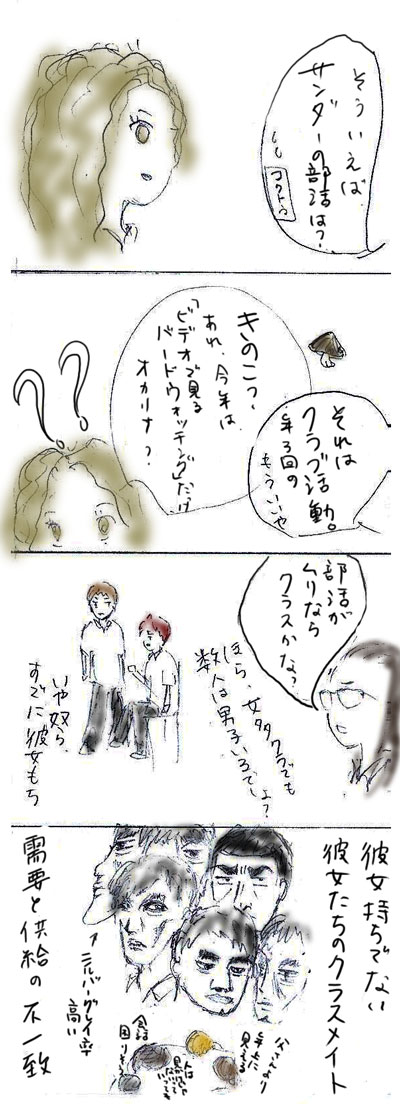 そういえば
サンダーの部活は?
きのこっ
あれ、今年は
「ビデオで見る
バードウォッチング」だけ
オカリナ?
それは
クラブ活動。
年3回の
もういいや
部活が
ムリなら
クラスかな?
ほら、女多クラでも
数人は男子いるでしょ?
いや奴ら
すでに彼女もち
彼女持ちでない
彼女たちのクラスメイト
需要と供給の不一致
高い
父さんより
年上に
見える
会話
困りもん